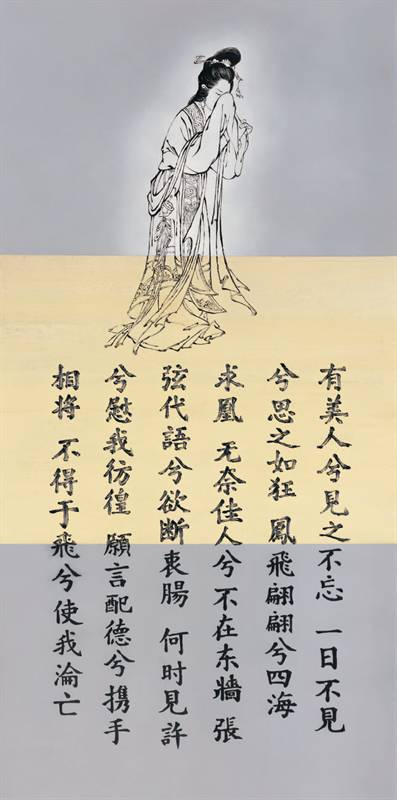 有美人兮見之不忘 一日不見
兮思之如狂 鳳飛翩翩兮四海
求凰 无奈佳人兮 不在东牆 張
弦代語兮欲断衷腸 何时見許
兮慰我彷徨 願言配德兮携手
相将 不得于飛兮使我淪亡